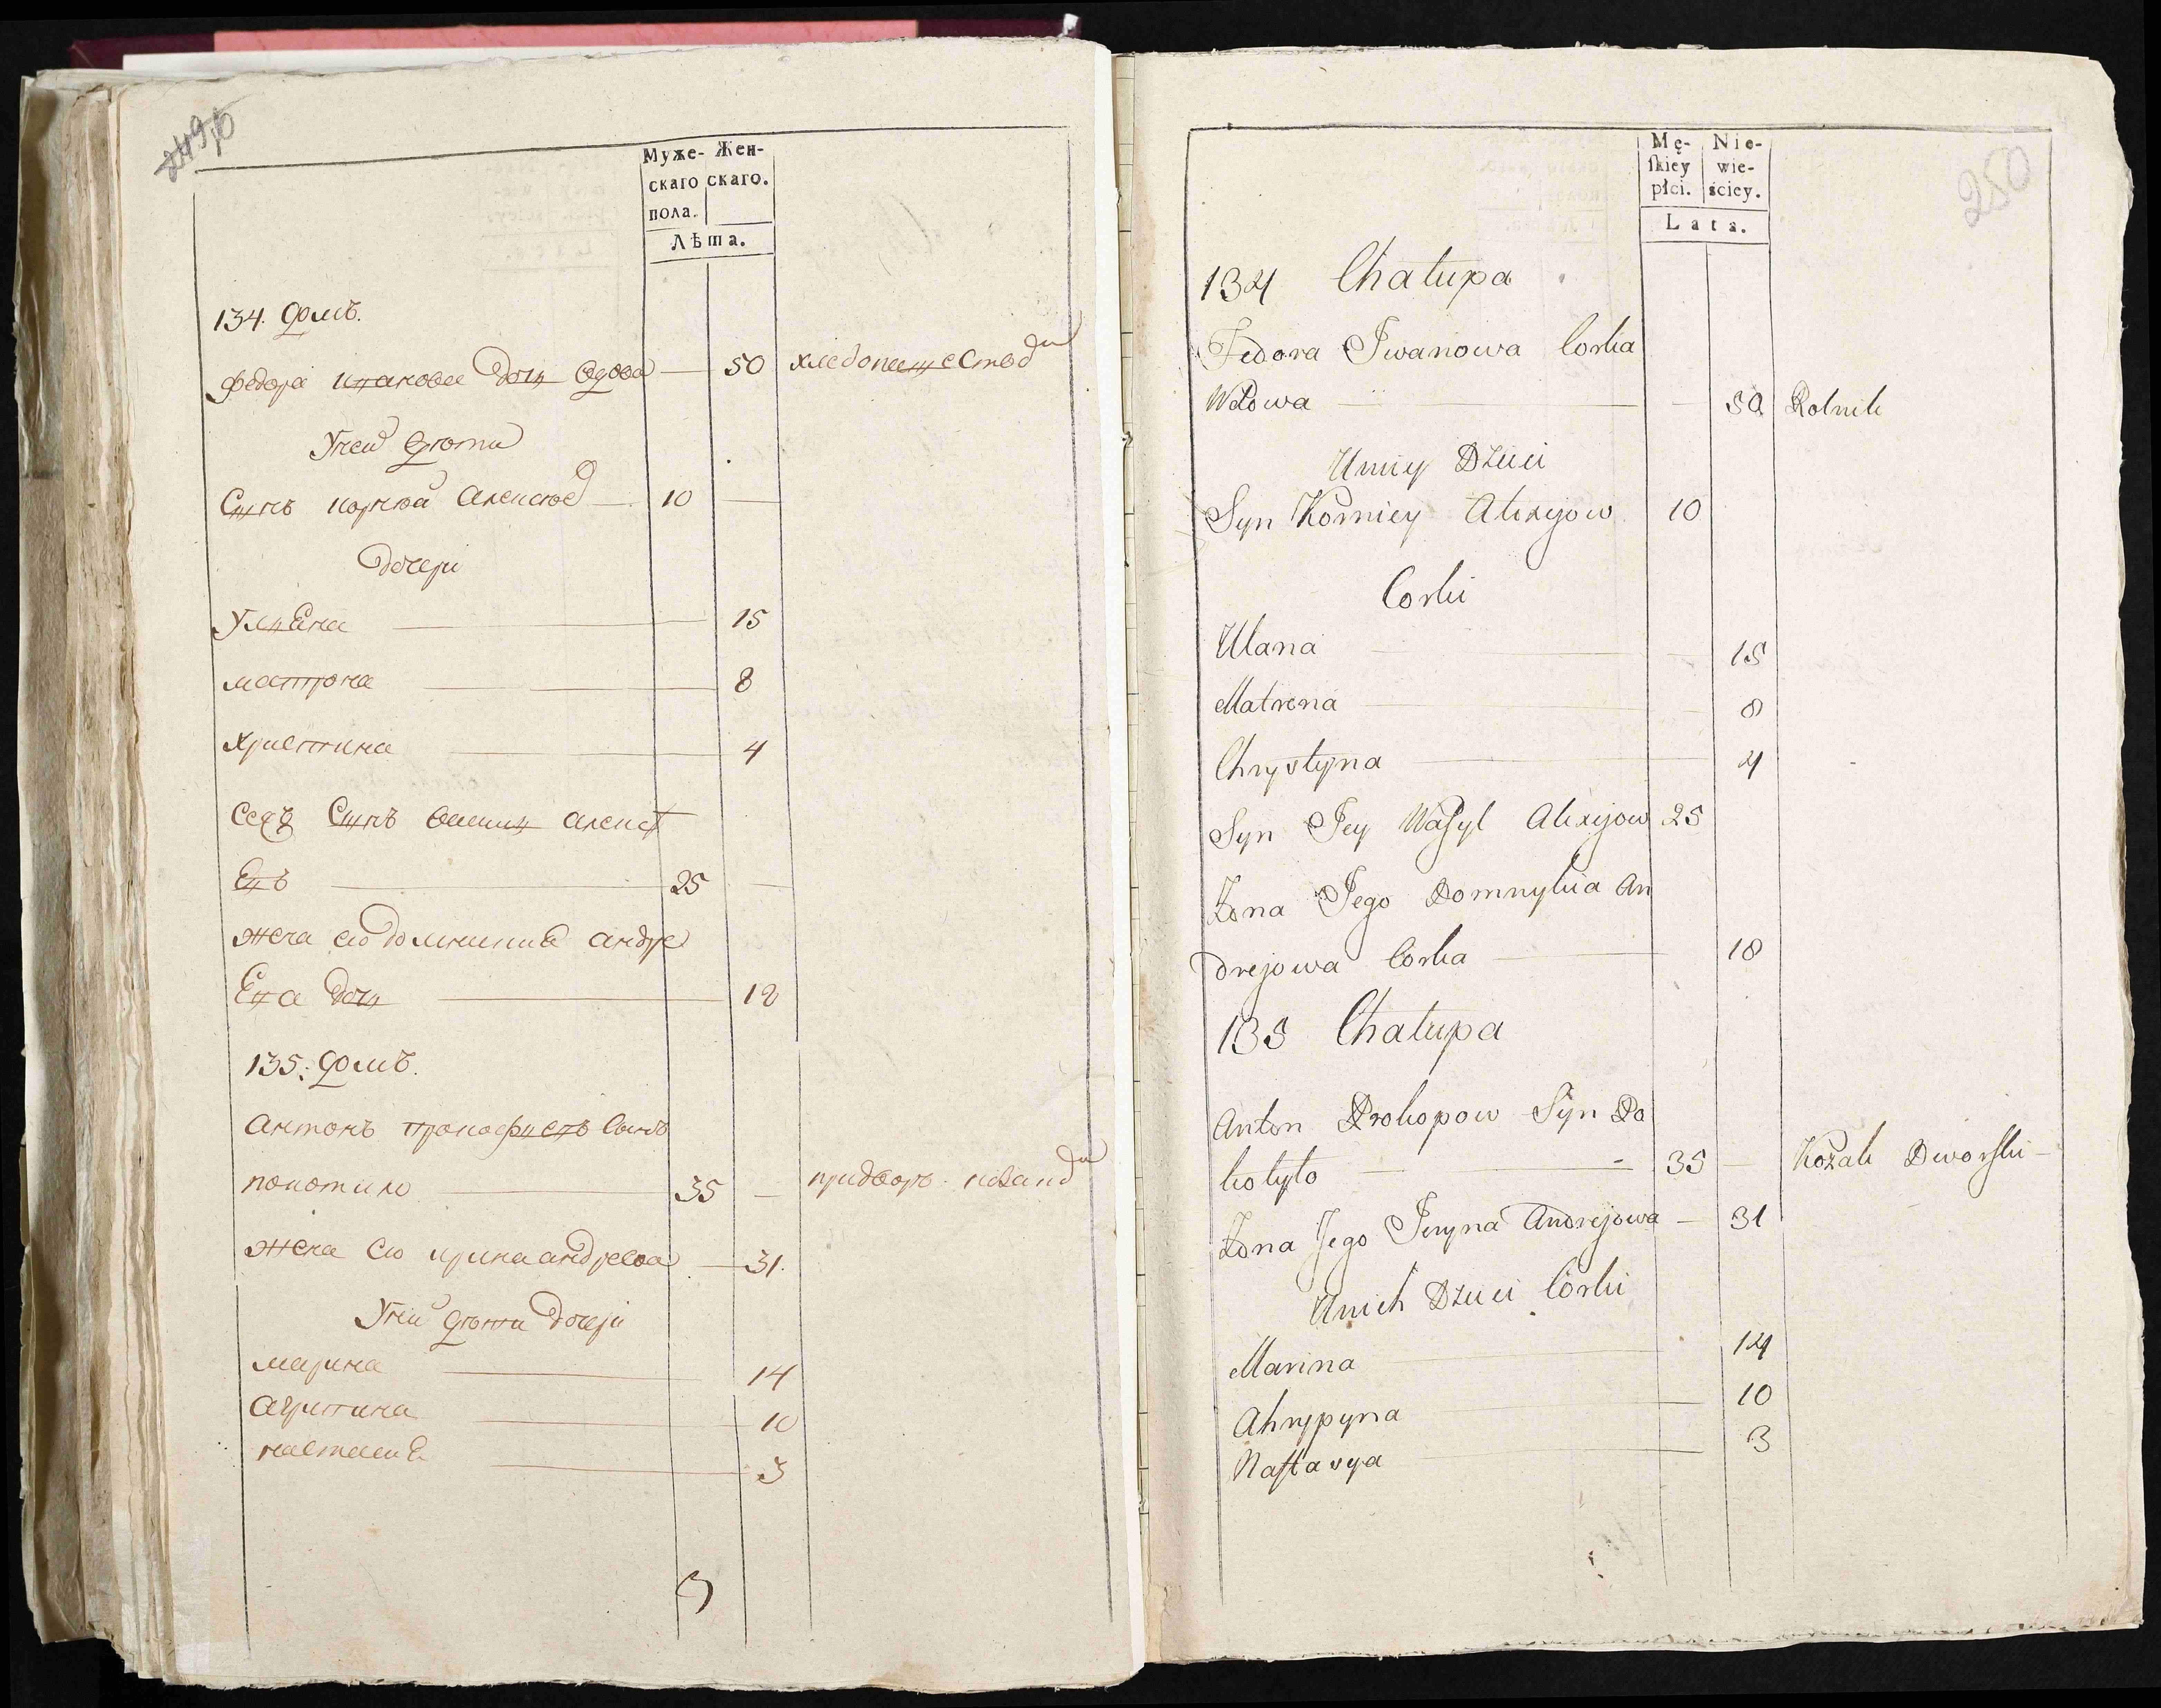 249об
Муже- Жен-
скаго скаго.
пола.
Лѣта.
134. домъ.
Федора ивановна дочь вдова — 50 хлебопашество
У неи дѣти
Сынъ корнѣй алексѣев — 10 —
дочери
Улияна — 15
матрона — 8
христина — 4
Сея Сынъ василий алексѣ
евъ — 25 —
жена его домникия андре
ева дочь — 18
135: домъ.
антонъ прокофиевъ сынъ
покотило — 35 — придвор: козакъ
жена его ирина андреева — 31.
У них дѣти дочери
марина — 14
агрипина — 10
настасия — 3
250
Mę- Nie-
skiey wie-
płci. ściey.
Lata.
134 Chałupa
Fedora Iwanowa Corka
Wdowa — — 50 Rolnik
U niey Dzieci
Syn Korniey Alexejow 10
Corki
Ulana — — 15
Matrena — — 8
Chrystyna — 4
Syn Jey Wasyl Alexejow 25
Żona Jego Domnykia An
drejowa Corka — 18
135 Chałupa
Anton Prokopow Syn Po
kotyło — 35 — Kozak Dworski —
Żona Jego Jeryna Andrejowa — 31
U nich Dzieci Córki
Marina — 14
Ahrypyna — 10
Nastasya — 3